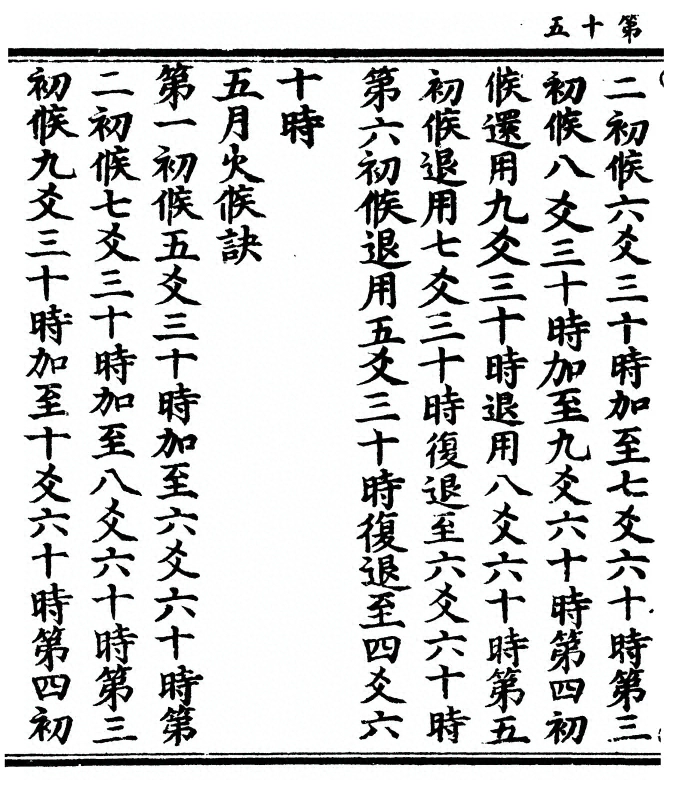 第十五
二初候六爻三十時加至七爻六十時第三
初候八爻三十時加至九爻六十時第四初
候還用九爻三十時退用八爻六十時第五
初候退用七爻三十時復退至六爻六十時
第六初候退用五爻三十時復退至四爻六
十時
五月火候訣
第一初候五爻三十時加至六爻六十時第
二初候七爻三十時加至八爻六十時第三
初候九爻三十時加至十爻六十時第四初